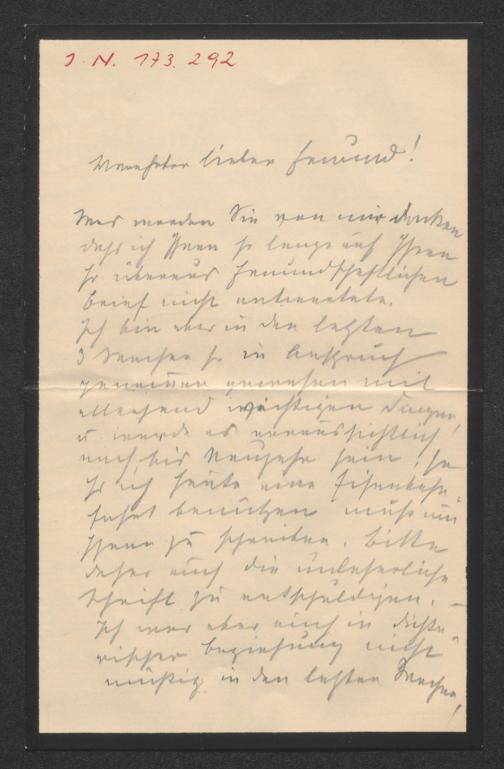 I. N. 173.292
Verehrter lieber Freund!
Was werden Sie von mir denken
daß ich Ihnen so lange auf Ihren
so überaus freundschaftlichen
Brief nicht antwortete.
Ich bin aber in den letzten
3 Wochen so in Anspruch
genommen gewesen mit
allerhand wichtigen Dingen,
u. werde es voraussichtlich
noch bis Neujahr sein, so
daß ich heute eine Eisenbahn-
fahrt benützen muß um
Ihnen zu schreiben. Bitte
daher auch die unleserliche
Schrift zu entschuldigen. –
Ich war aber auch in dichte-
rischer Beziehung nicht
müßig in den letzten Wochen,